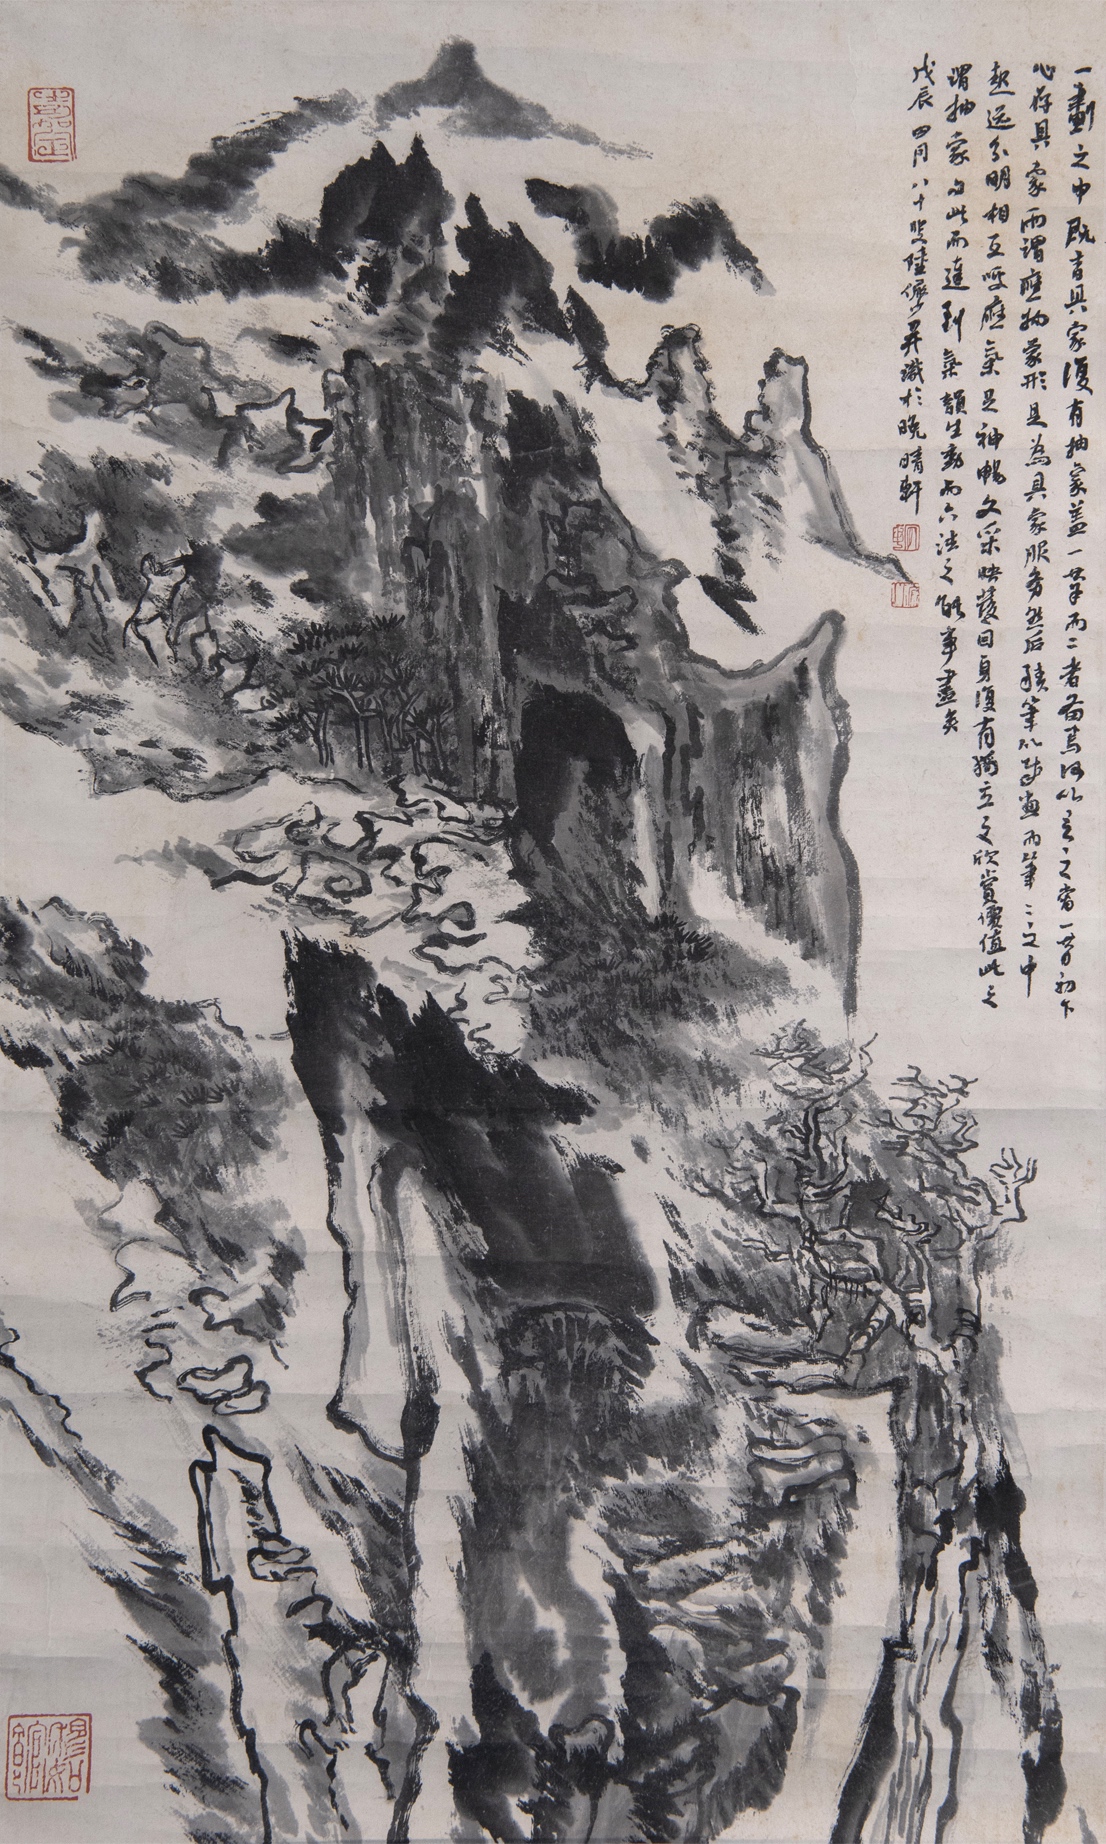 一劃之中既有具象復有抽象蓋一筆而二者備焉何以言之當一筆初下
心存具象而謂應物象形是為具象服務然后積筆以成畫而筆筆之中
起迄分明相互呼應氣足神暢文采映發回身復有獨立之欣賞價值此之
謂抽象由此而達到氣韻生動而六法之能事盡矣
戊辰四月八十叟陸儼少並識於晚晴軒
穆如館